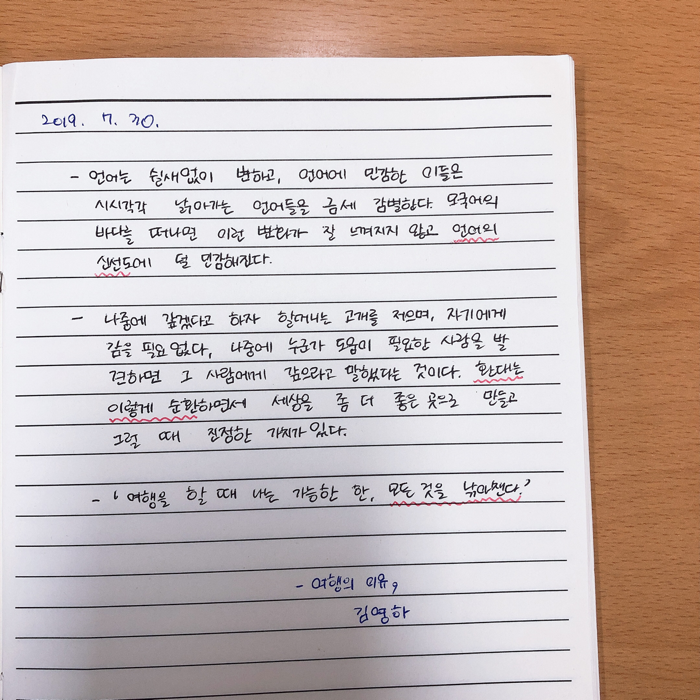 2019. 7. 30.
- 언어는 쉴새없이 변하고, 언어에 민감한 이들은
시시각각 낡아가는 언어들을 금세 감별한다. 모국어의
바다를 떠나면 이런 변화가 잘 느껴지지 않고 언어의
신선도에 덜 민감해진다.
- 나중에 갚겠다고 하자 할머니는 고개를 저으며, 자기에게
갚을 필요 없다, 나중에 누군가 도움이 필요한 사람을 발
견하면 그 사람에게 갚으라고 말했다는 것이다. 환대는
이렇게 순환하면서 세상을 좀 더 좋은 곳으로 만들고
그럴 때 진정한 가치가 있다.
- '여행을 할 때 나는 가능한 한, 모든 것을 낚아챈다.'
- 여행의 이유,
김영하